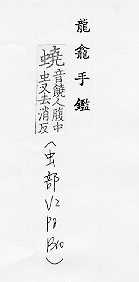 龍龕手鑑
蟯音饒人腹中
虫又去消反
(虫部 V2 P9 B10)